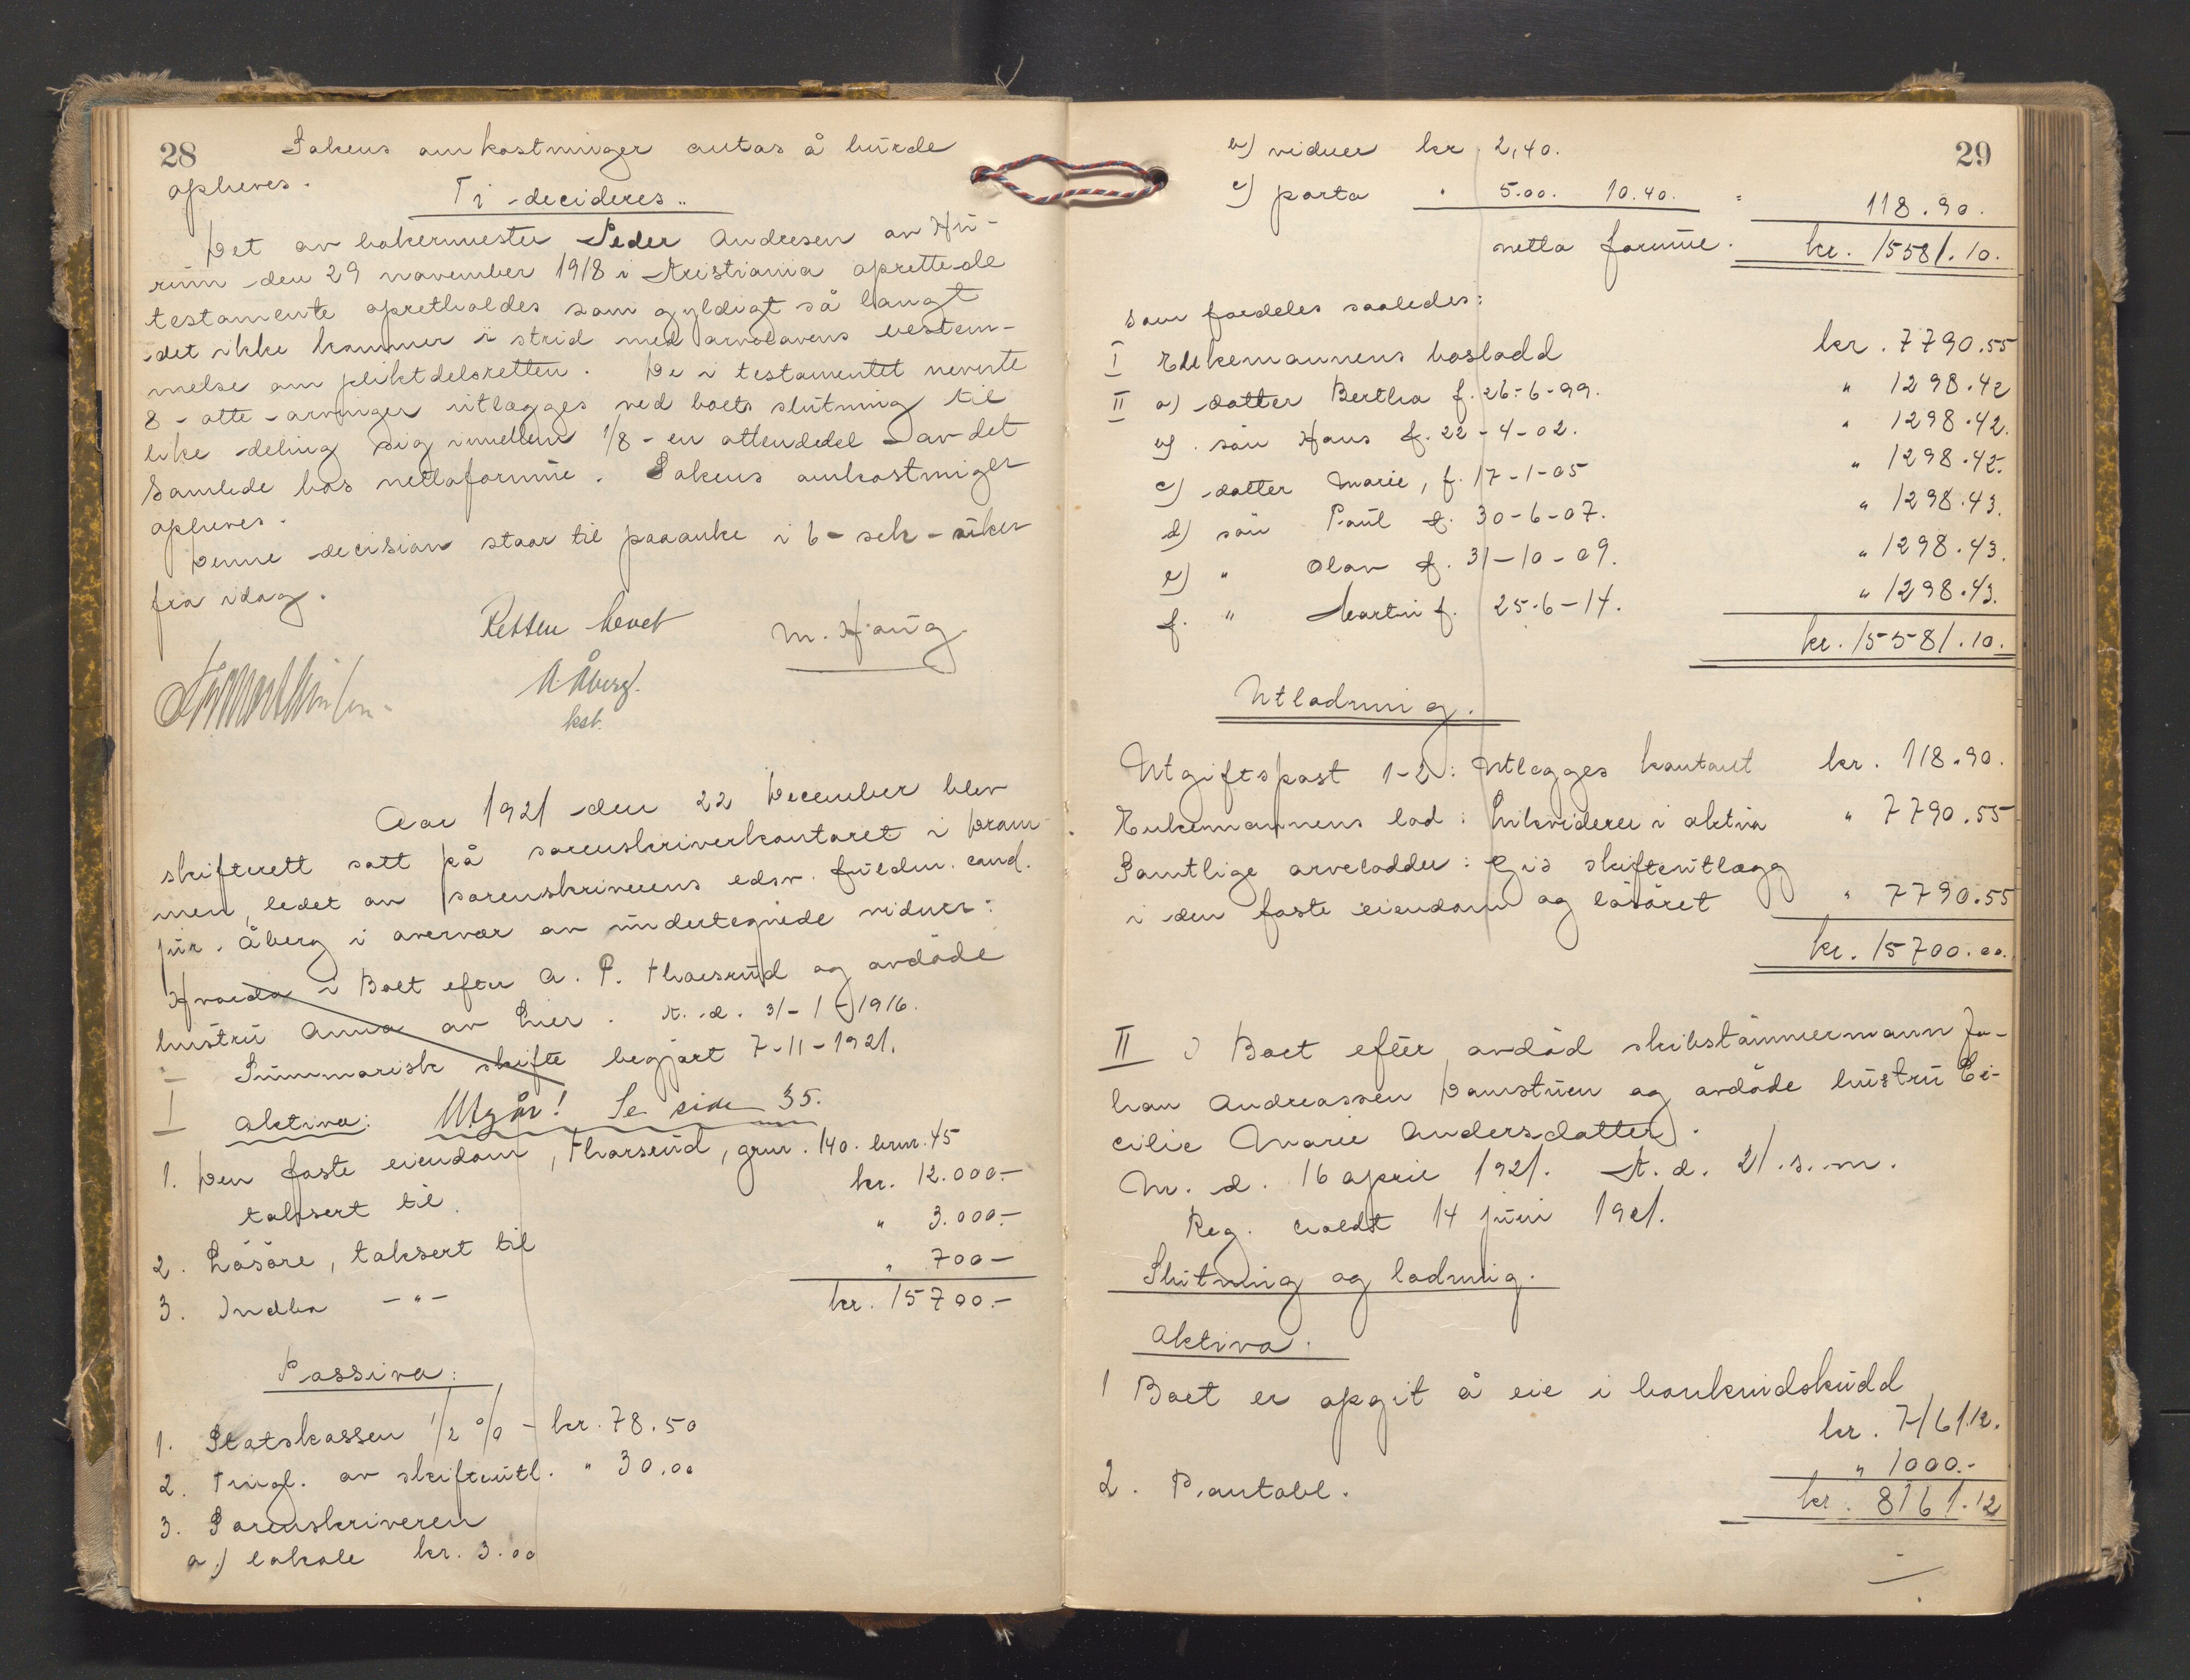 28
Sakens omkostninger antas å burde
opheves.
Ti decideres..
Det av bakermester Peder Andresen av Hu-
rum den 29 november 1918 i Kristiania oprettede
testamente opretholdes som gyldigt så langt
det ikke kommer i strid med arvelovens bestem-
melse om pliktdelsretten. De i testamentet nevnte
8 - otte - arvinger utlægges ved boets slutning til
like deling sig imellem 1/8 - en ottendedel - av det
samlede bos nettoformue. Sakens omkostninger
opheves.
Denne decision staar til paaanke i 6 - seks - uker
fra idag.
Retten hevet
M. Haug.
A. Åberg.
kst.
Aar 1921 den 22 December blev
skifterett satt på sorenskriverkontoret i Dram-
men, ledet av sorenskriverens edsv. fuldm. cand.
jur. Åberg i overvær av undertegnede vidner:
Hvorda i Boet efter A. P. Thorsrud og avdöde
hustru Anna av Lier. A. d. 31-1-1916.
Summarisk skifte begjært 7-11-1921.
I Aktiva: Utgår! Se side 35.
1. Den faste eiendom, Thorsrud, grnr. 140. brnr. 45
taksert til kr. 12.000.-
2. Lösöre, taksert til " 3.000.-
3. Indbo -"- " 700-
kr. 15700.-
Passiva:
1. Statskassen 1/2 % - kr. 78.50
2. Tingl. av skifteutl. " 30.00
3. Sorenskriveren
a) lokale kr. 3.00
29
b) vidner kr. 2,40.
c) porto " 5.00. 10.40. = 118.90.
netto formue. kr. 15581.10.
som fordeles saaledes:
I Enkemannens boslodd kr. 7790.55
II a) datter Bertha f. 26-6-99. " 1298.42
b) sön Hans f. 22-4-02. " 1298.42.
c) datter Marie, f. 17-1-05 " 1298.42.
d) sön Paul f. 30-6-07. " 1298.43.
e) " Olav f. 31-10-09. " 1298.43.
f. " Martin f. 25-6-14. " 1298.43.
kr. 15581.10.
Utlodning.
Utgiftspost 1-2: Utlegges kontant kr. 118.90.
Enkemannens lod: Likviderer i aktiva " 7790.55
Samtlige arvelodder: Gis skifteutlegg
i den faste eiendom og lösöret " 7790.55
kr. 15700.00.
II I Boet efter avdöd skibstömmermann Jo-
han Andreassen Damstuen og avdöde hustru Ce-
cilie Marie Andersdatter.
M. d. 16 april 1921. A. d. 21. s. m.
Reg. holdt 14 juni 1921.
Slutning og lodning.
Aktiva.
1 Boet er opgit å eie i bankindskudd
kr. 7161.12.
2. Pantobl. " 1000.-
kr. 8161.12